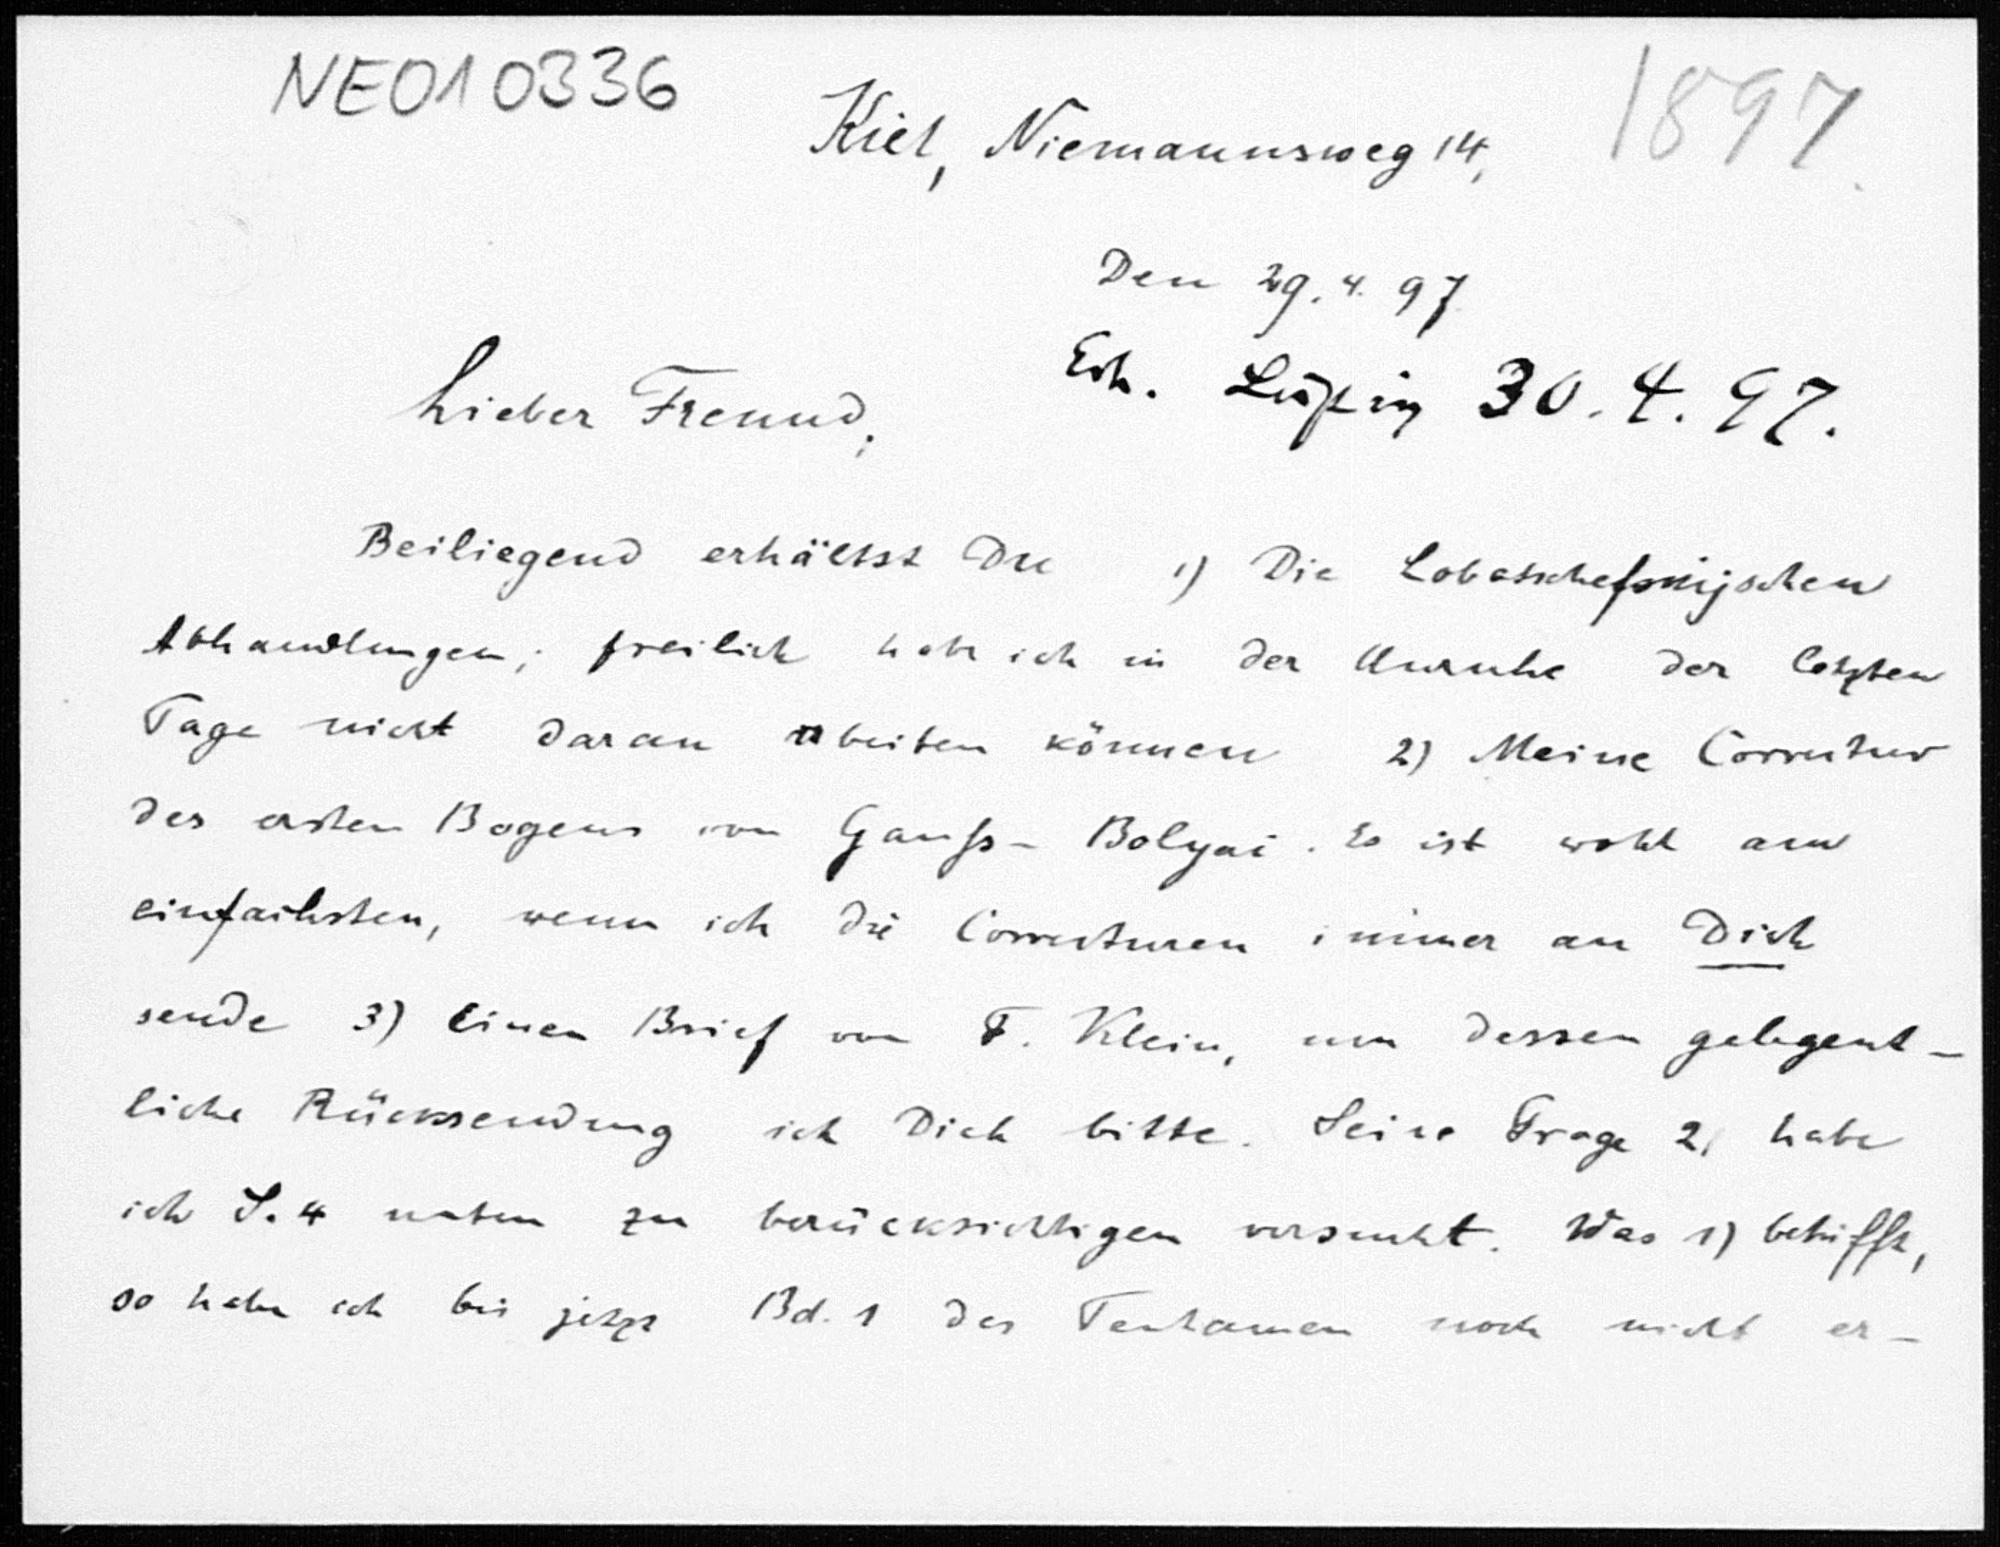 NE010336
1897
Kiel, Niemannsweg 14,
Den 29.4.97
Erh. Leipzig 30.4.97.
Lieber Freund,
Beiliegend erhältst Du 1) Die Lobatschefskijschen
Abhandlungen; freilich habe ich in der Unruhe der letzten
Tage nicht daran arbeiten können 2) Meine Correctur
des ersten Bogens von Gauß-Bolyai. Es ist wohl am
einfachsten, wenn ich die Correcturen immer an Dich
sende 3) Einen Brief von F. Klein, um dessen gelegent-
liche Rücksendung ich Dich bitte. Seine Frage 2) habe
ich S. 4 unten zu berücksichtigen versucht. Was 1) betrifft,
so habe ich bis jetzt Bd. 1 des Tentamen noch nicht er-